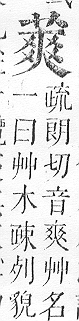 䔪
疏朗切音爽艸名
一曰艸木疎列貌